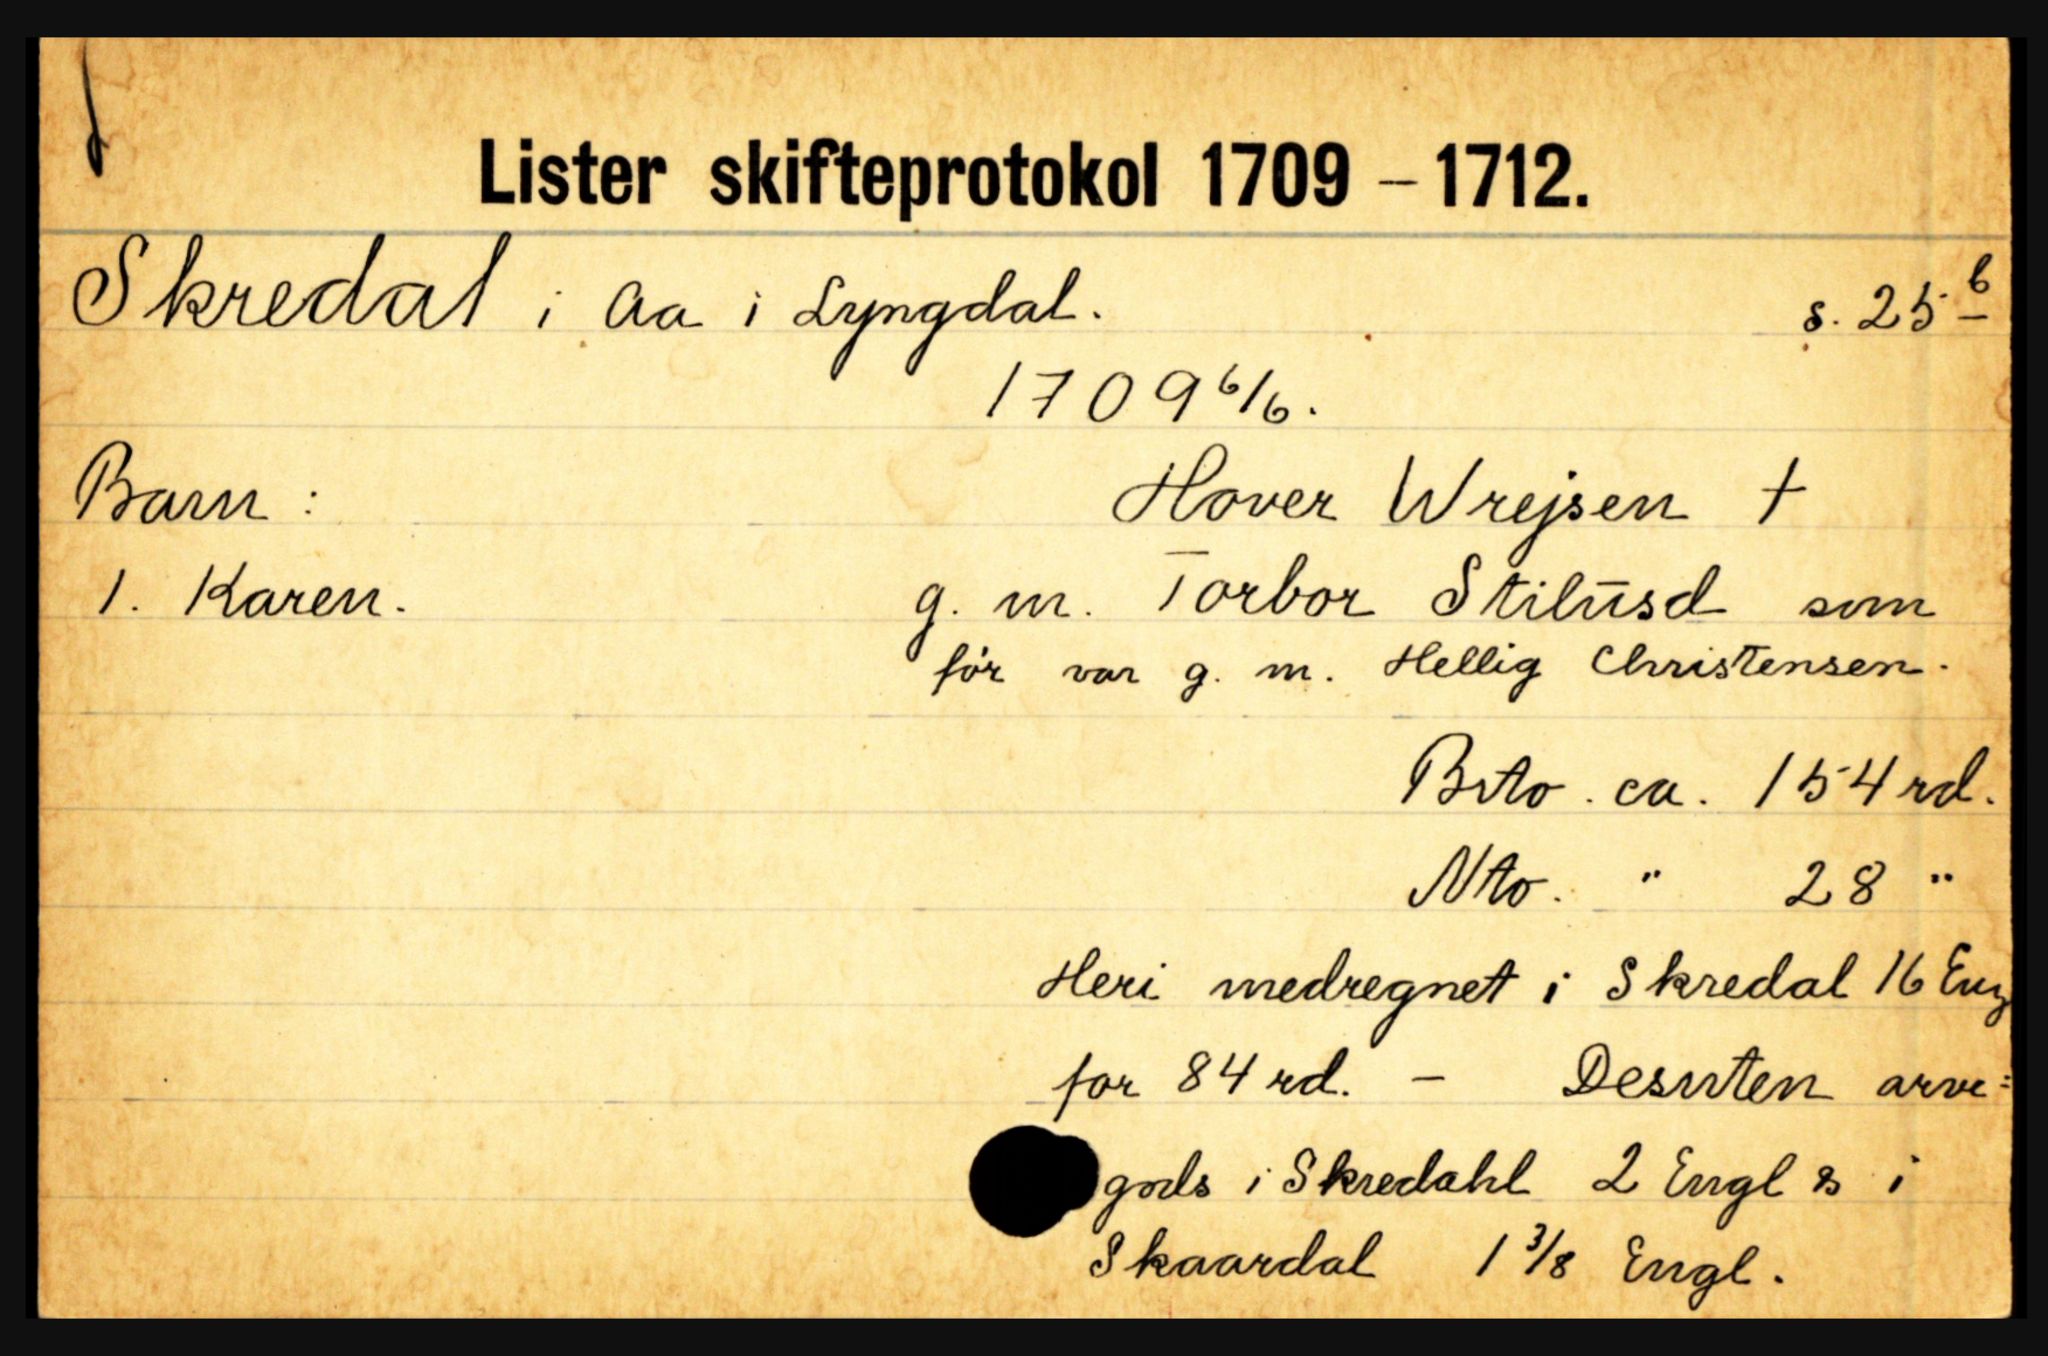 Lister skifteprotokol 1709 – 1712.
Skredal i Aa i Lyngdal. s. 25 b
1709 6/6.
Barn : Hover Wrejsen †
1. Karen. g. m. Torbor Stilusd som
før var g. m. Hellig Christensen.
Brto. ca. 154 rd.
Nto. " 28 "
Heri medregnet i Skredal 16 Eng
for 84 rd. – Desuten arve=
gods i Skredahl 2 Engl & i
Skaardal 1 3/8 Engl.